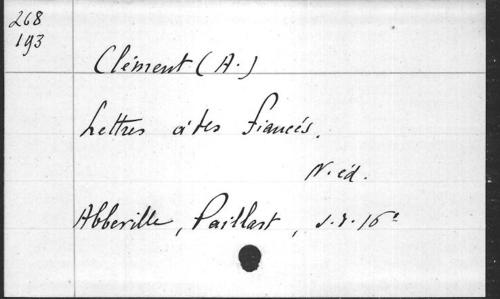 268
193
Clément (A.)
Lettres à des fiancés.
N. éd.
Abbeville, Paillart, s. d. 16°